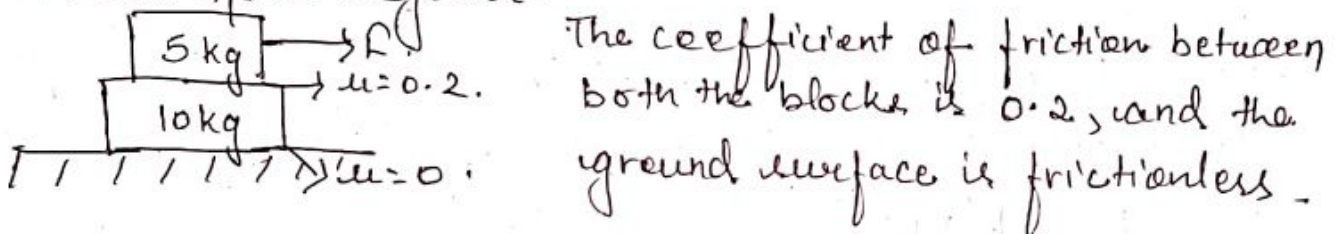 5 kg F
μ=0.2.
10kg
μ=0.
The coefficient of friction between
both the blocks is 0.2, and the
ground surface is frictionless.